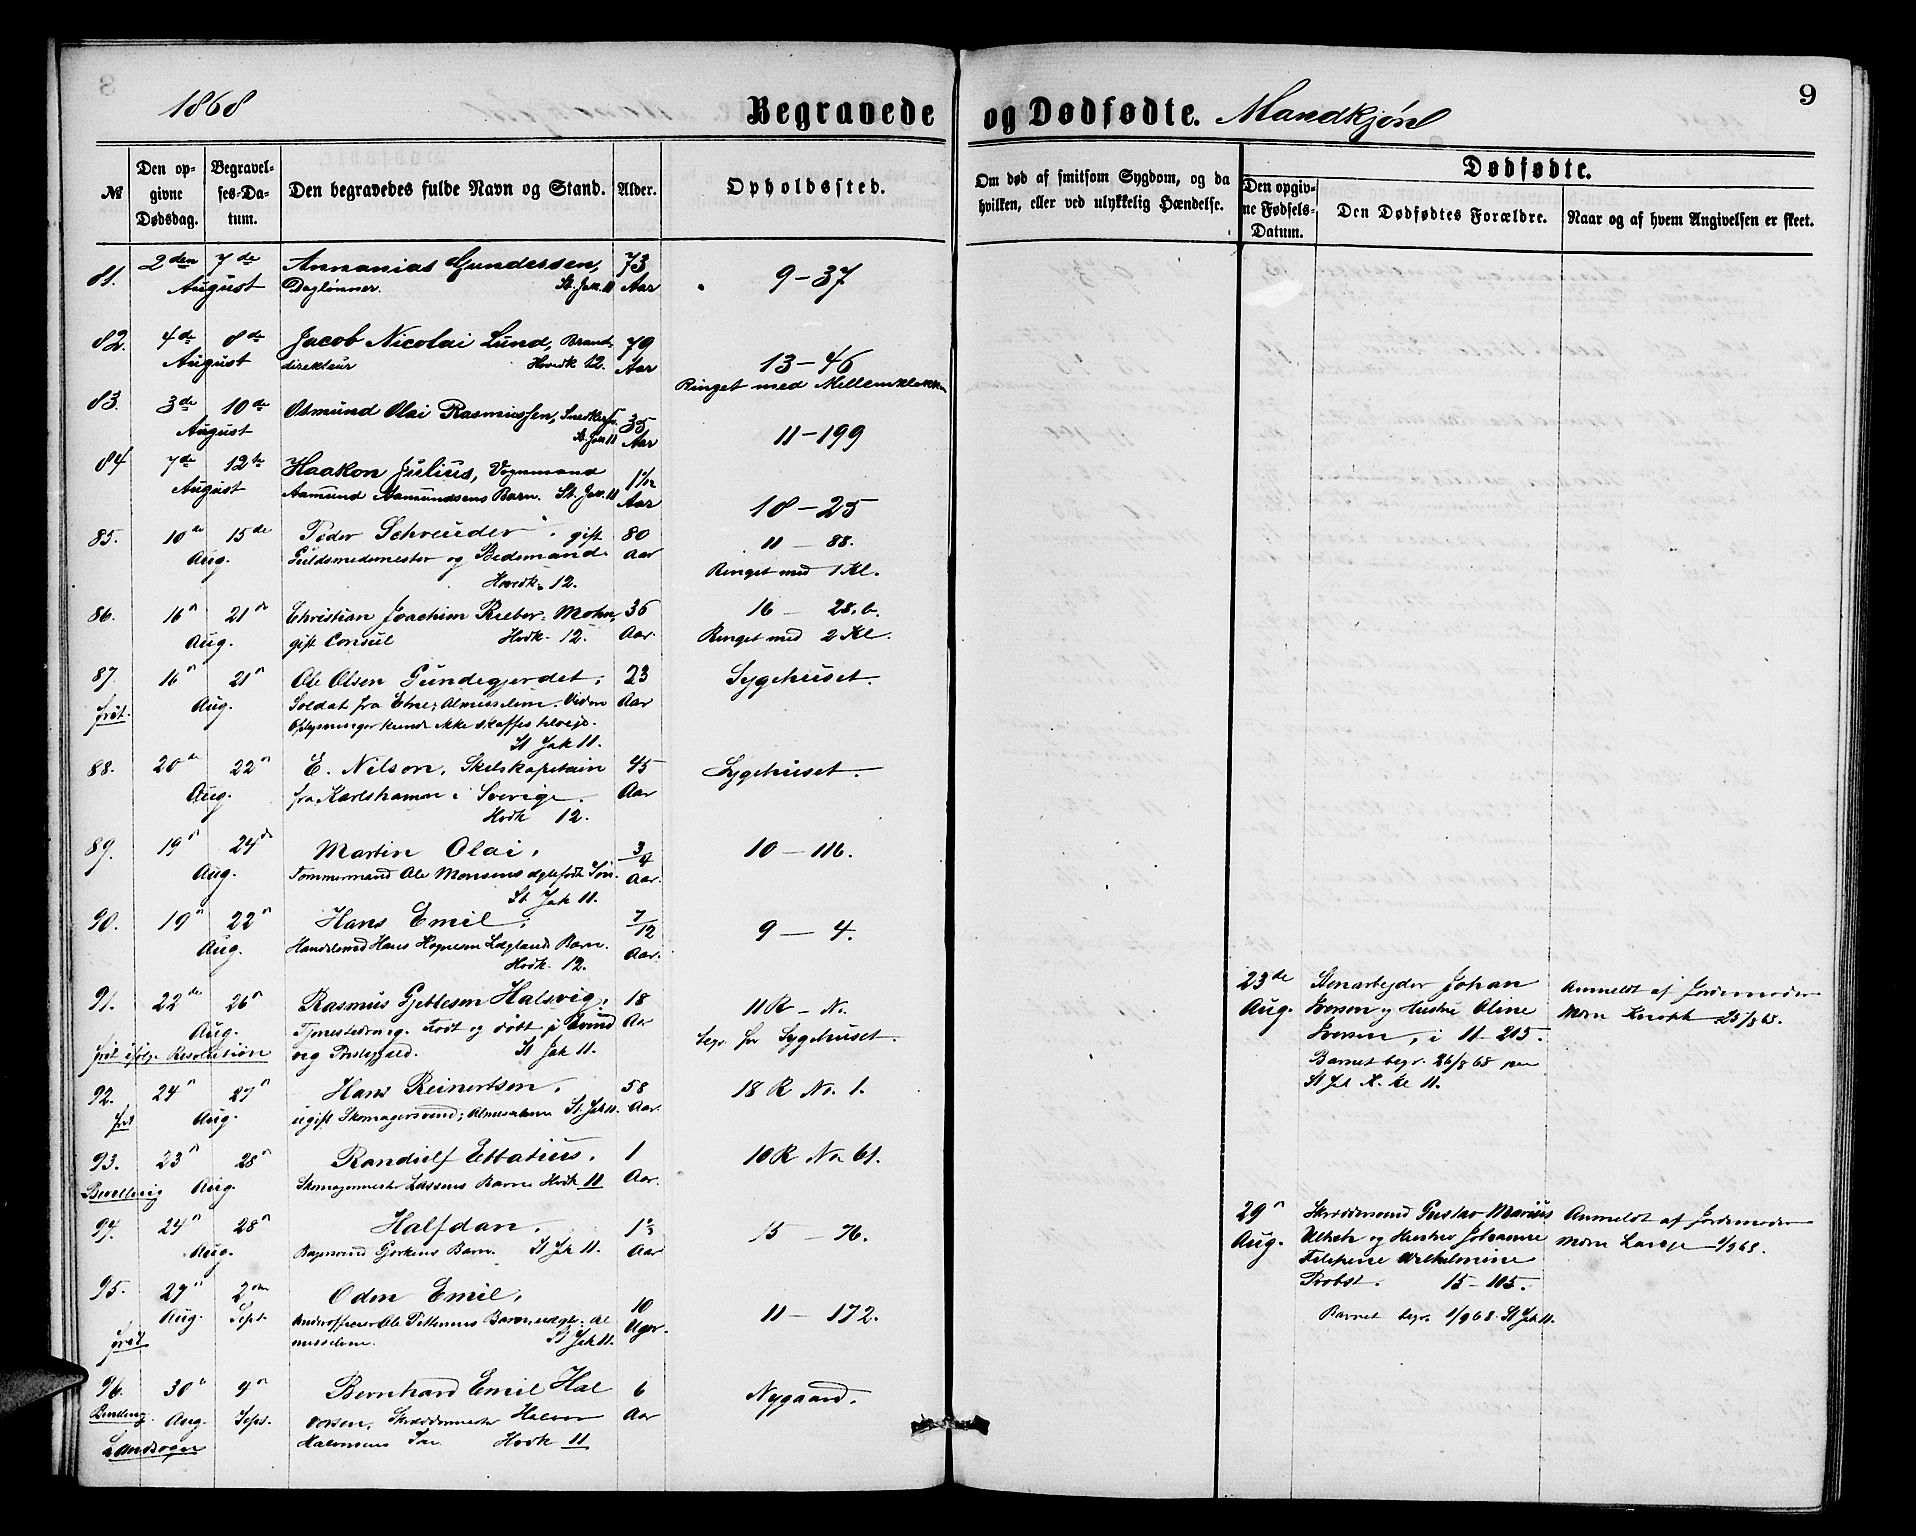 1868 Begravede og Dødfødte. Mandkjøn 9
№ Den opgivne Dødsdag. Begravelses-Datum. Den begravedes fulde Navn og Stand. Alder. Opholdssted. Om død af smitsom Sygdom, og da hvilken, eller ved ulykkelig Hændelse. Dødfødte. Den opgivne Fødsels-Datum. Den Dødfødtes Forældre. Naar og af hvem Angivelsen er skeet.
81. 2den 7de Annanias Gundersen, 73
August Daglønner. St. Jak. 11 Aar 9-37
82. 4de 8de Jacob Nicolai Lund, Brand- 79
August direkteur Hovedk 12. Aar 13-46
Ringet med Mellemklokken
83. 3de 10de Osmund Olai Rasmussen, Snedkersv. 35
August St. Jak 11 Aar 11-199
84 7de 12te Haakon Julius, Vognmand 1 1/12
August Aamund Aamundsens Barn. St. Jac. 11 Aar 10-25
85. 10de 15de Peder Schreuder, gift 80 11 - 88.
Aug. Guldsmedemester og Bedemand. Aar Ringet med 1 Kl.
Hovedk. 12.
86. 16n 21de Christian Joachim Rieber Mohn, 36 16 - 28.b.
Aug. gift Consul Hvdk. 12. Aar. Ringet med 2 Kl.
87. 16n 21n Ole Olsen Gundegjerdet, 23 Sygehuset.
frit. Aug. Soldat fra Etne; Almuselem. Videre Aar
Oplysninger kunde ikke skaffes tilveje.
St Jak 11.
88. 20de 22n E. Nilson, Skibskapitain 45 Sygehuset.
Aug. fra Karlshamn i Sverige. Aar
Hvdk 12.
89. 19n 24de Martin Olai, 3/4 10 - 116.
Aug. Tømmermand Ole Monsens ægtefødte Søn. Aar.
St Jak 11.
90. 19n 22n Hans Emil, 7/12 9 - 4.
Aug. Handelsmd Hans Barn. Aar.
Hvdk. 12.
91. 22de 26n Rasmus Gjertsen Halsvig, 18 11 R - N.
Aug. Født og døbt i Evind Aar Sygehuset.
frit ifølge Resolution vig Præstegjeld. St Jak 11.
23de Stenarbejder Johan Anmeldt af Jordemoder
Aug. Iversen og Hustru Oline Mdm 25/8 68.
Iversen, i 11-215.
Barnet begr. 26/8 68 paa
St Jk K. kl 11.
92. 24n 27n Hans Reinertsen, 58 18 R No. 1.
frit Aug. ugift Skomagersvend; Almuselem St Jak 11. Aar.
93. 23n 28n Randulf Ebbatius. 1 10 R No 61.
Bevilling Aug. Skomagermester Lassens Barn Hvdk 11 Aar.
94. 24n 28n Halfdan, 1 15 - 76.
Aug. Bagersvend Barn. St Jak 11. Aar
29n Skræddersvend Gustav Marius Anmeldt af Jordemoder
Aug. og Hustru Johanne Mdm 1/9 68.
Wilhelmine
Probst. 15-105.
Barnet begr. 1/9 68. St Jak 11.
95. 29n 2den Oden Emil, 10 11 - 172.
frit Aug. Sept. Underofficer Ole Barn, Al- Uger.
muselem. St Jak 11.
96. 30n 4n Bernhard Emil Hal 6 Nygaard.
Bevilling. Aug. Sept. vorsen, Skræddermester Halvor Aar
Landsogn Halvorsens Søn Hvdk 11